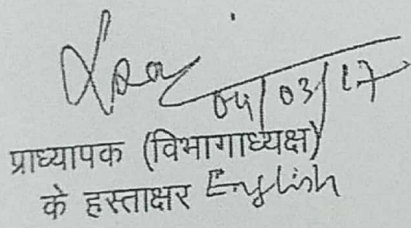 04/03/17
प्राध्यापक (विभागाध्यक्ष)
के हस्ताक्षर English